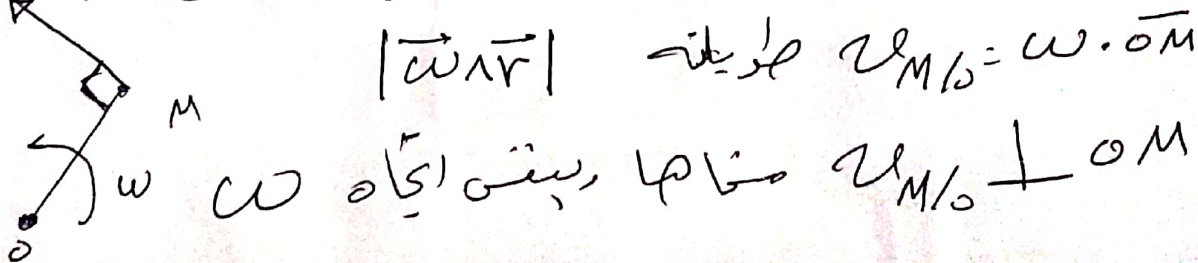 v_{M/O} = ω · \overline{OM} طويلته |\vec{ω} ∧ \vec{r}|
v_{M/O} ⊥ OM منحاها وبنفس اتجاه ω
M
ω
O